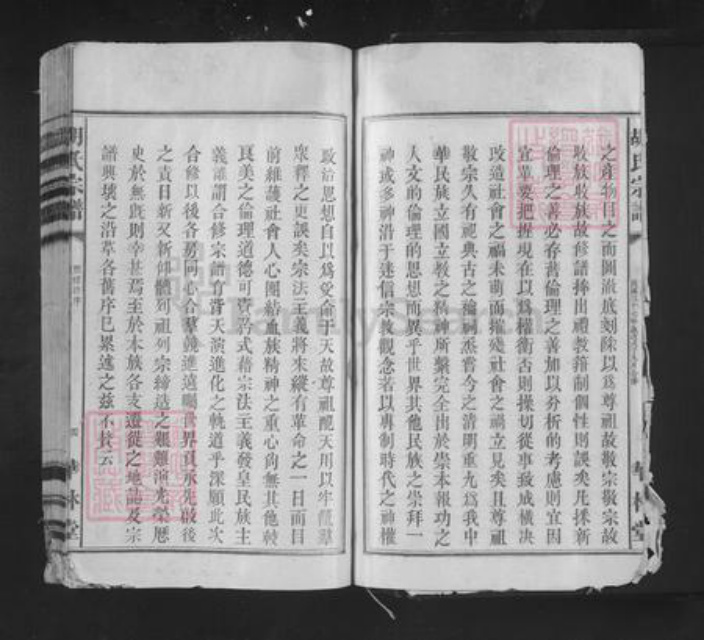 之產物目之而圖澈底剗除以爲尊祖故敬宗敬宗故
收族收族故修譜捧出禮教箝制個性則誤矣凡採新
倫理之善必存舊倫理之善加以分析的考慮則宜因
宜革要把握現在以爲權衡否則操切從事致成橫决
改造社會之福未萌而摧殘社會之禍立見矣且尊祖
敬宗久有祀典古之禴祠烝嘗今之清明重九爲我中
華民族立國立教之精神所繫完全出於崇本報功之
人文的倫理的思想而異乎世界其他民族之崇拜一
神或多神沿于迷信宗教觀念若以專制時代之神權
政治思想自以爲受命于天故尊祖配天用以牢籠羣
衆釋之更誤矣宗法主義將來縱有革命之一日而目
前維護社會人心團結血族精神之重心尙無其他較
良美之倫理道德可資矜式藉宗法主義發皇民族主
義誰謂合修宗譜有背天演進化之軌道乎深願此次
合修以後各房同心合羣競進遠矚世界頁承先啟後
之責日新又新仰體列祖列宗締造之艱難演光榮歷
史於無旣則幸甚焉至於本族各支遷從之地誌及宗
譜興壞之沿革各舊序已累述之茲不技云
胡氏宗譜
華林堂
胡氏宗譜
華林堂
FamilySearch